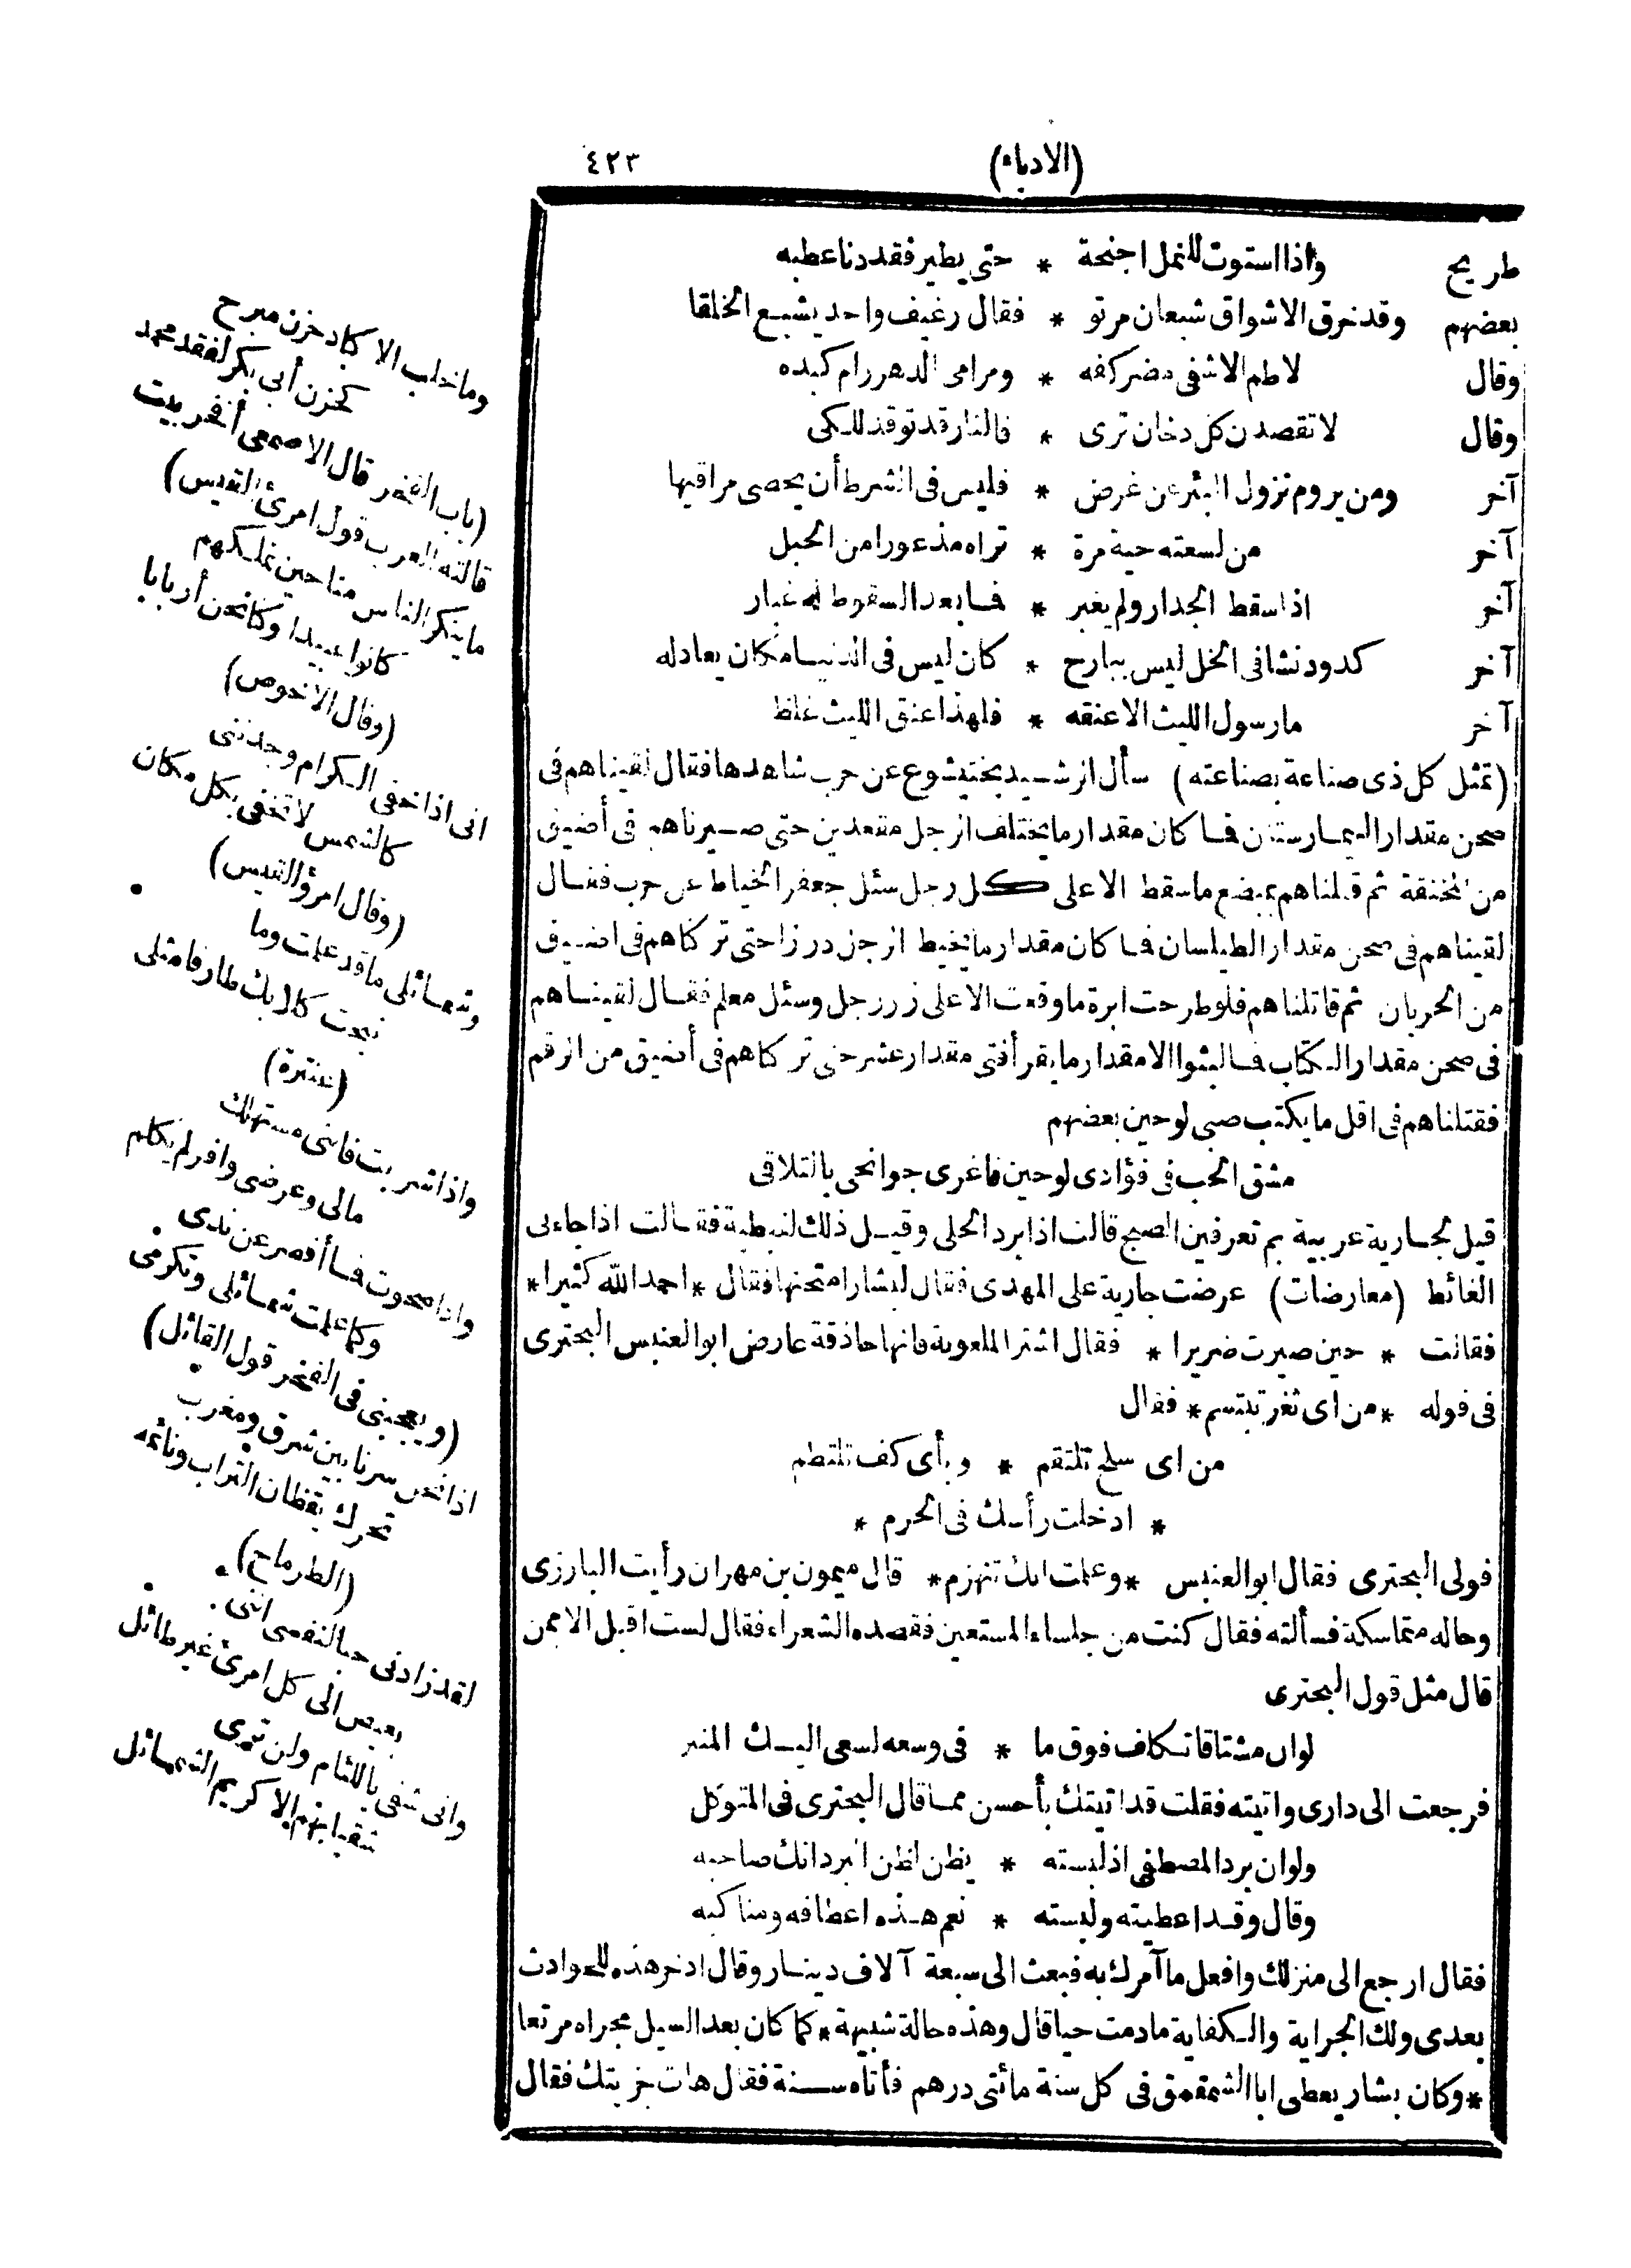 (الادباء)
٤٢٣
طريح واذا استوت للنمل اجنحة * حتى يطير فقد دنا عطبه
بعضهم وقد خرق الاشواق شبعان مرتو * فقال رغيف واحد يشبع الخلقا
وقال لا طم الاشفى مضر كفه * ومرامى الدهر رام كبده
وقال لا تقصدن كل دخان ترى * فالنار قد توقد للكى
آخر ومن يروم نزول البئر عن غرض * فليس فى الشرط أن يحصى مراقيها
آخر من لسعته حية مرة * تراه مذعورا من الحبل
آخر اذا سقط الجدار ولم يغبر * فما بعد السقوط له غبار
آخر كدود نشا فى الخل ليس ببارح * كان ليس فى الدنيا مكان يعادله
آخر ما رسول الليث الا عنقه * فلهذا عنق الليث غلظ
(تمثل كل ذى صناعة بصناعته) سأل الرشيد بختيشوع عن حرب شاهدها فقال لقيناهم فى
صحن مقدار البيمارستان فما كان مقدار ما يختلف الرجل مقعدين حتى صيرناهم فى أضيق
من المخنقة ثم قتلناهم بمبضع ما سقط الا على كل رجل سئل جعفر الخياط عن حرب فقال
لقيناهم فى صحن مقدار الطيلسان فما كان مقدار ما يخيط الرجل درزا حتى تركناهم فى اضيق
من الحربان ثم قاتلناهم فلو طرحت ابرة ما وقعت الا على زر رجل وسئل معلم فقال لقيناهم
فى صحن مقدار الكتاب فما لبثوا الا مقدار ما يقرأ فتى مقدار عشر حتى تركناهم فى أضيق من الرقم
فقتلناهم فى اقل ما يكتب صبى لوحين بعضهم
مشق الحب فى فؤادى لوحين فاغرى جوانحى بالتلاقى
قيل لجارية عربية بم تعرفين الصبح قالت اذا برد الحلى وقيل ذلك لنبطية فقالت اذا جاءنى
الغائط (معارضات) عرضت جارية على المهدى فقال لبشار امتحنها فقال * احمد الله كثيرا *
فقالت * حين صيرت ضريرا * فقال اشتر الملعوبة فانها حاذقة عارض ابو العنبس البحترى
فى قوله * من اى ثغر تبتسم * فقال
من اى سلح تلتقم * وبأى كف تلتطم
* ادخلت رأسك فى الحرم *
فولى البحترى فقال ابو العنبس * وعلمت انك تنهزم * قال ميمون بن مهران رأيت البارزى
وحاله متماسكة فسألته فقال كنت من جلساء المستعين فقصده الشعراء فقال لست اقبل الا ممن
قال مثل قول البحترى
لو ان مشتاقا تكلف فوق ما * فى وسعه لسعى اليك المنبر
فرجعت الى دارى واتيته فقلت قد اتيتك بأحسن مما قال البحترى فى المتوكل
ولو ان برد المصطفى اذ لبسته * يظن لظن البرد انك صاحبه
وقال وقد اعطيته ولبسته * نعم هذه اعطافه ومناكبه
فقال ارجع الى منزلك وافعل ما آمرك به فبعث الى سبعة آلاف دينار وقال ادخر هذه للحوادث
بعدى ولك الجراية والكفاية ما دمت حيا قال وهذه حالة شبيهة * كما كان بعد السيل مجراه مرتعا
* وكان بشار يعطى ابا الشمقمق فى كل سنة مائتى درهم فأتاه سنة فقال هات جزيتك فقال
وما خلب الاكباد حزن مبرح
كحزن أبى بكر لفقد محمد
(باب الفخر قال الاصمعى أفخر بيت
قالته العرب قول امرئ القيس)
ما ينكر الناس منا حين نملكهم
كانوا عبيدا وكنا نحن أربابا
(وقال الاخوص)
انى اذا خفى الكرام وجدتنى
كالشمس لا تخفى بكل مكان
(وقال امرؤ القيس)
وشمائلى ما قد علمت وما
نبحت كلابك طارقا مثلى
(عنترة)
واذا شربت فاننى مستهلك
مالى وعرضى وافر لم يكلم
واذا صحوت فما أقصر عن ندى
وكما علمت شمائلى وتكرمى
(ويعجبنى فى الفخر قول القائل)
اذا نحن سرنا بين شرق ومغرب
تحرك يقظان التراب ونائمه
(الطرماح)
لقد زادنى حبا لنفسى اننى
بغيض الى كل امرئ غير طائل
وانى شقى باللئام ولن ترى
شقيا بهم الا كريم الشمائل